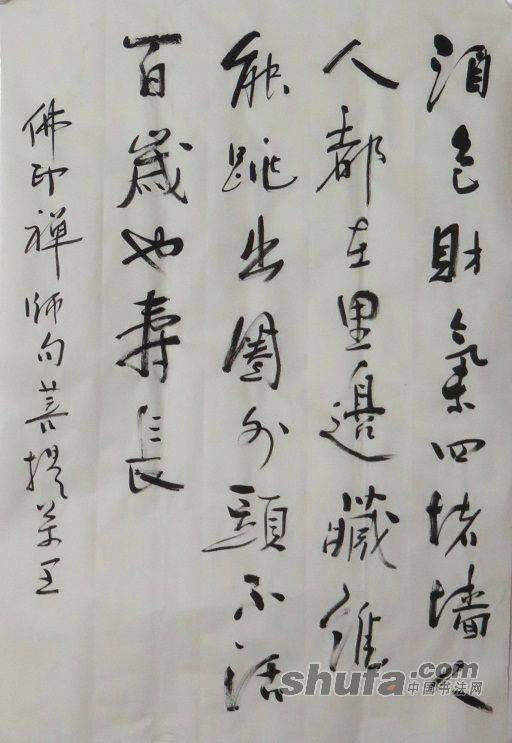 酒色財氣四堵墻人
人都在里邊藏誰
能跳出圈外頭不活
百歲也壽長
佛印禅師句菩提
shufa.com
中国书法网